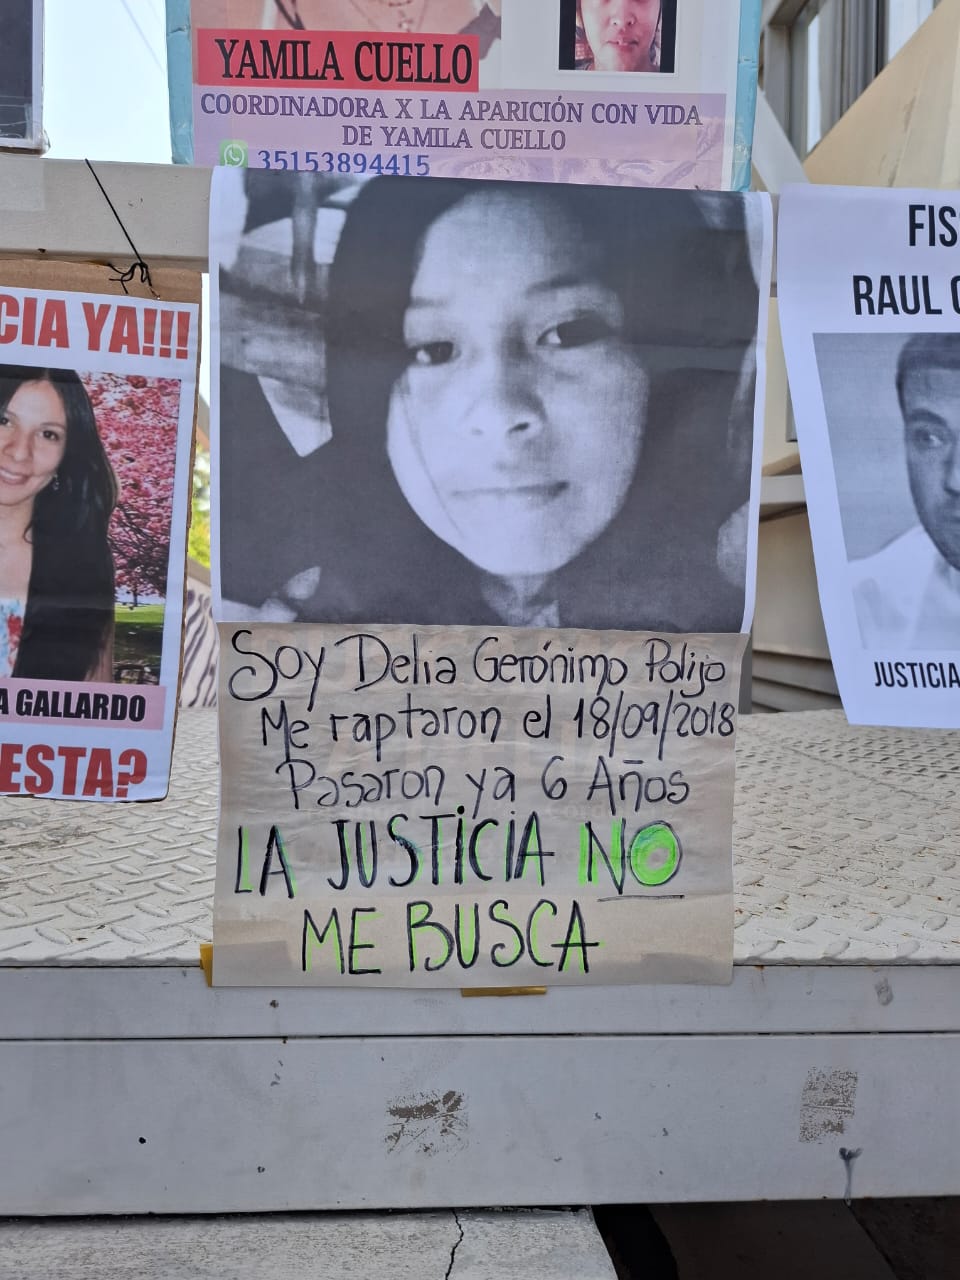 YAMILA CUELLO
COORDINADORA X LA APARICIÓN CON VIDA
DE YAMILA CUELLO
35153894415
CIA YA!!!
A GALLARDO
ESTA?
Soy Delia Gerónimo Polijo
Me raptaron el 18/09/2018
Pasaron ya 6 Años
LA JUSTICIA NO
ME BUSCA
FIS
RAUL
JUSTICIA